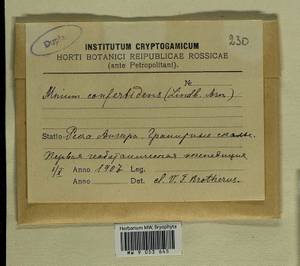 Dupl.
230
INSTITUTUM CRYPTOGAMICUM
HORTI BOTANICI REIPUBLICAE ROSSICAE
(ante Petropolitani).
№
Mnium confertidens (Lindb. Arn)
Statio Река Вишера. Гранитные скалы.
Первая экспедиция
Anno 1907 Leg.
Anno Det. V. F. Brotherus.
Herbarium MW, Bryophyta
MW 9 053 645